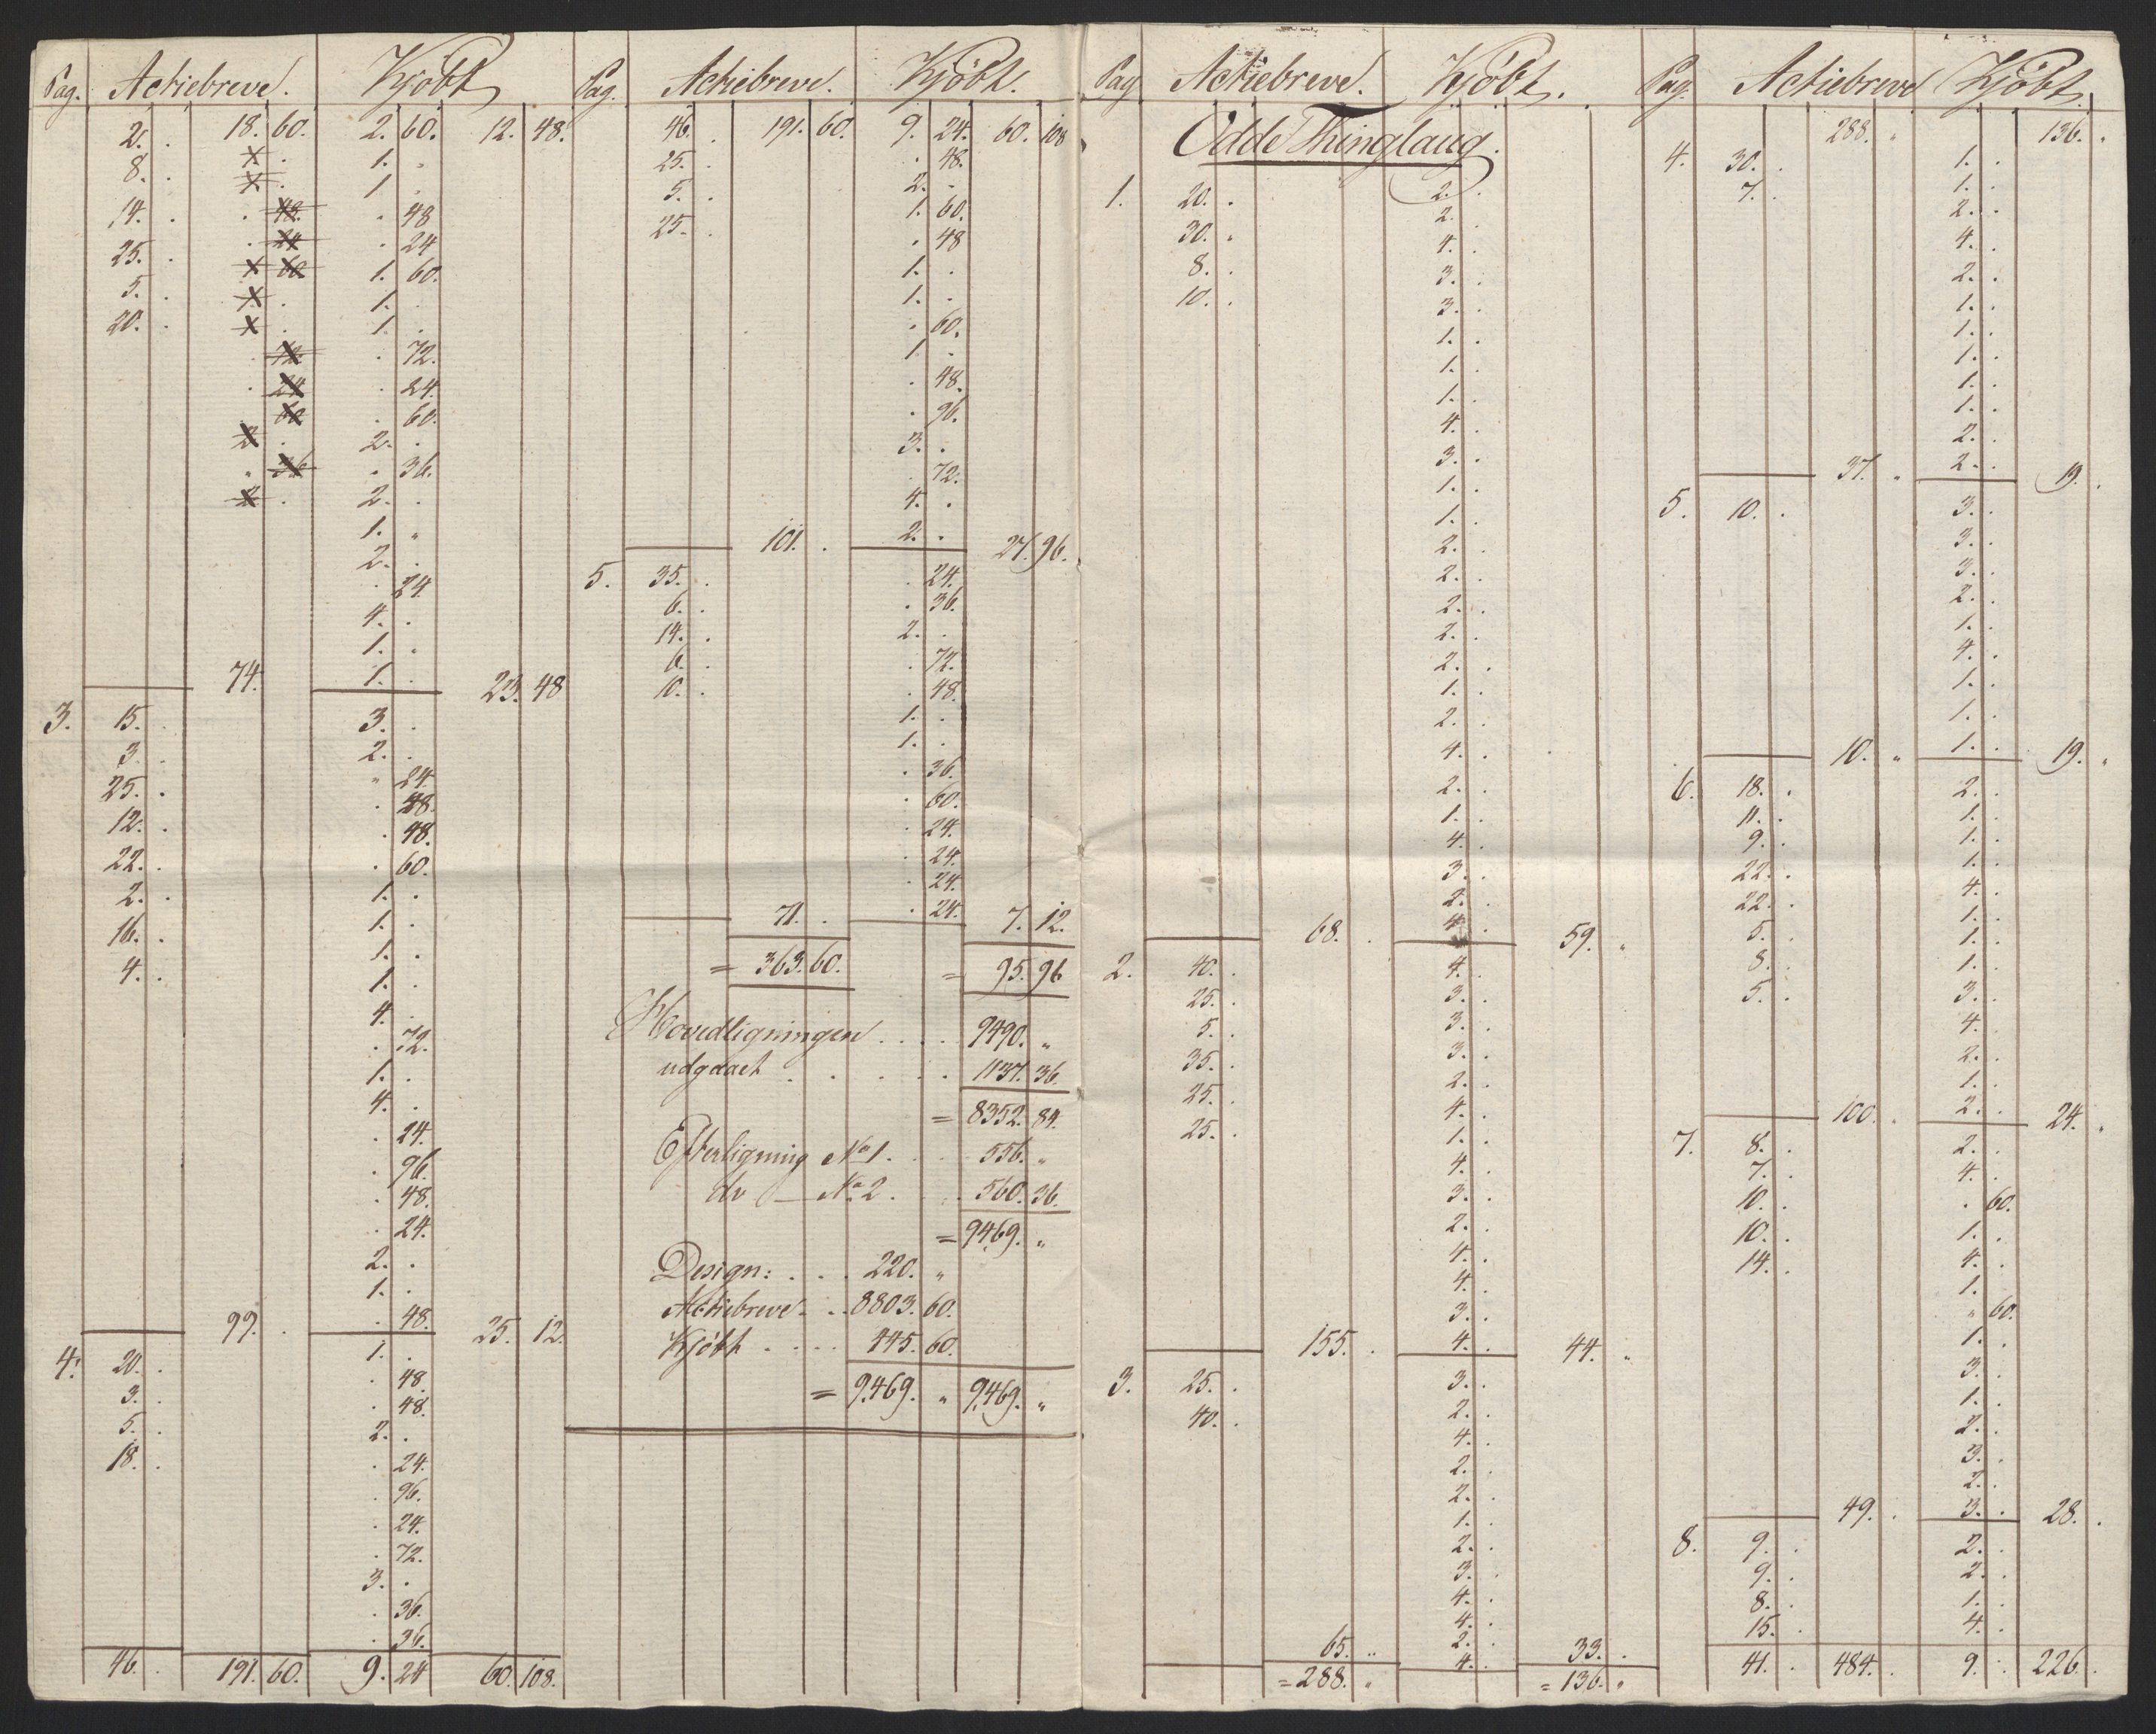 Pag. Actiebreve. Kjöbt
2. . 18. 60. 2. 60. 12. 48.
8. . 1. .
14. . 1. .
25. . 48. . 48
5. . 24 . 24
20. . 60 1. 60.
1. .
1. .
72. . 72.
24 . 24.
60 . 60.
2 . 2. .
36 . 36.
2 . 2. .
1. "
2. .
. 24
4. .
1. .
74. 1. . 23. 48
3. 15. . 3. .
3. . 2. .
25. . " 24.
12. . . 48.
22. . . 48.
2. . . 60.
16. . 1. .
4. . 1. .
1. .
1. .
4. .
. 72.
1. .
4. .
. 24.
. 96.
. 48.
. 24.
2. .
1. .
99. . . 48. 25. 12.
4. 20. . 1. .
3. . . 48.
5. . . 48.
18. . 2. .
. 24.
. 96.
. 24.
. 72.
3. .
. 36.
. 36.
46. . 191. 60. 9. 24 60. 108.
Pag. Actiebreve. Kjöbt.
46. . 191. 60. 9. 24. 60. 108
25. . . 48.
5. . 2. .
25. . 1. 60.
. 48
1. .
1. .
. 60.
1. .
. 48.
. 96.
3. .
. 72.
4. .
101. . 2. . 27. 96.
5. 35. . . 24.
6. . . 36.
14. . 2. .
6. . . 72.
10. . . 48.
1. .
1. .
. 36.
. 60.
. 24.
. 24.
. 24.
71. . . 24. 7. 12.
= 363. 60. = 95. 96
Hovedligningen . . . . 9490. "
udgaaet . . . . . 1137. 36.
= 8352. 84.
Efterligning No 1. . . . 556. "
do — No 2 . . . . 560. 36.
= 9469. "
Design: . . . 220. "
Actiebreve . . 8803. 60.
Kjöbt . . . . 445. 60.
= 9469. " 9469. "
Pag Actiebreve. Kjöbt.
Odde Thinglaug.
1. 20. . 2. .
30. . 2. .
8. . 4. .
10. . 3. .
3. .
1. .
1. .
1. .
4. .
3. .
1. .
1. .
2. .
2. .
2. .
2. .
2. .
1. .
2. .
4. .
2. .
1. .
4. .
3. .
2. .
68. . 4. . 59. "
2. 40. . 4. .
25. . 3. .
5. . 3. .
35. . 3. .
25. . 2. .
25. . 4. .
1. .
4. .
3. .
2. .
4. .
4. .
3. .
155. . 4. . 44. "
3. 25. . 3. .
40. . 2. .
4. .
2. .
2. .
1. .
2. .
3. .
4. .
4. .
65. " 2. . 33. .
= 288. " 4. . = 136. "
Pag. Actiebreve Kjöbt.
288. " 136. "
4. 30. . 1. .
7. . 1. .
2. .
4. .
2. .
1. .
1. .
1. .
1. .
1. .
2. .
37. " 2. . 19. .
5. 10. . 3. .
3. .
3. .
2. .
1. .
4. .
1. .
1. .
10. " 1. . 19. "
6. 18. . 2. .
11. . 1. .
9. . 1. .
22. . 1. .
22. . 4. .
5. . 1. .
8. . 1. .
5. . 1. .
3. .
4. .
2. .
1. .
100. . 2. . 24. "
7. 8. . 2. .
7. . 4. .
10. . . 60.
10. . 1. .
14. . 4. .
1. .
" 60.
1. .
3. .
1. .
2. .
3. .
2. .
49. . 3. . 28. .
8. 9. . 2. .
9. . 2. .
8. . 1. .
15. . 4. .
41. . 484. . 9. . 226. .